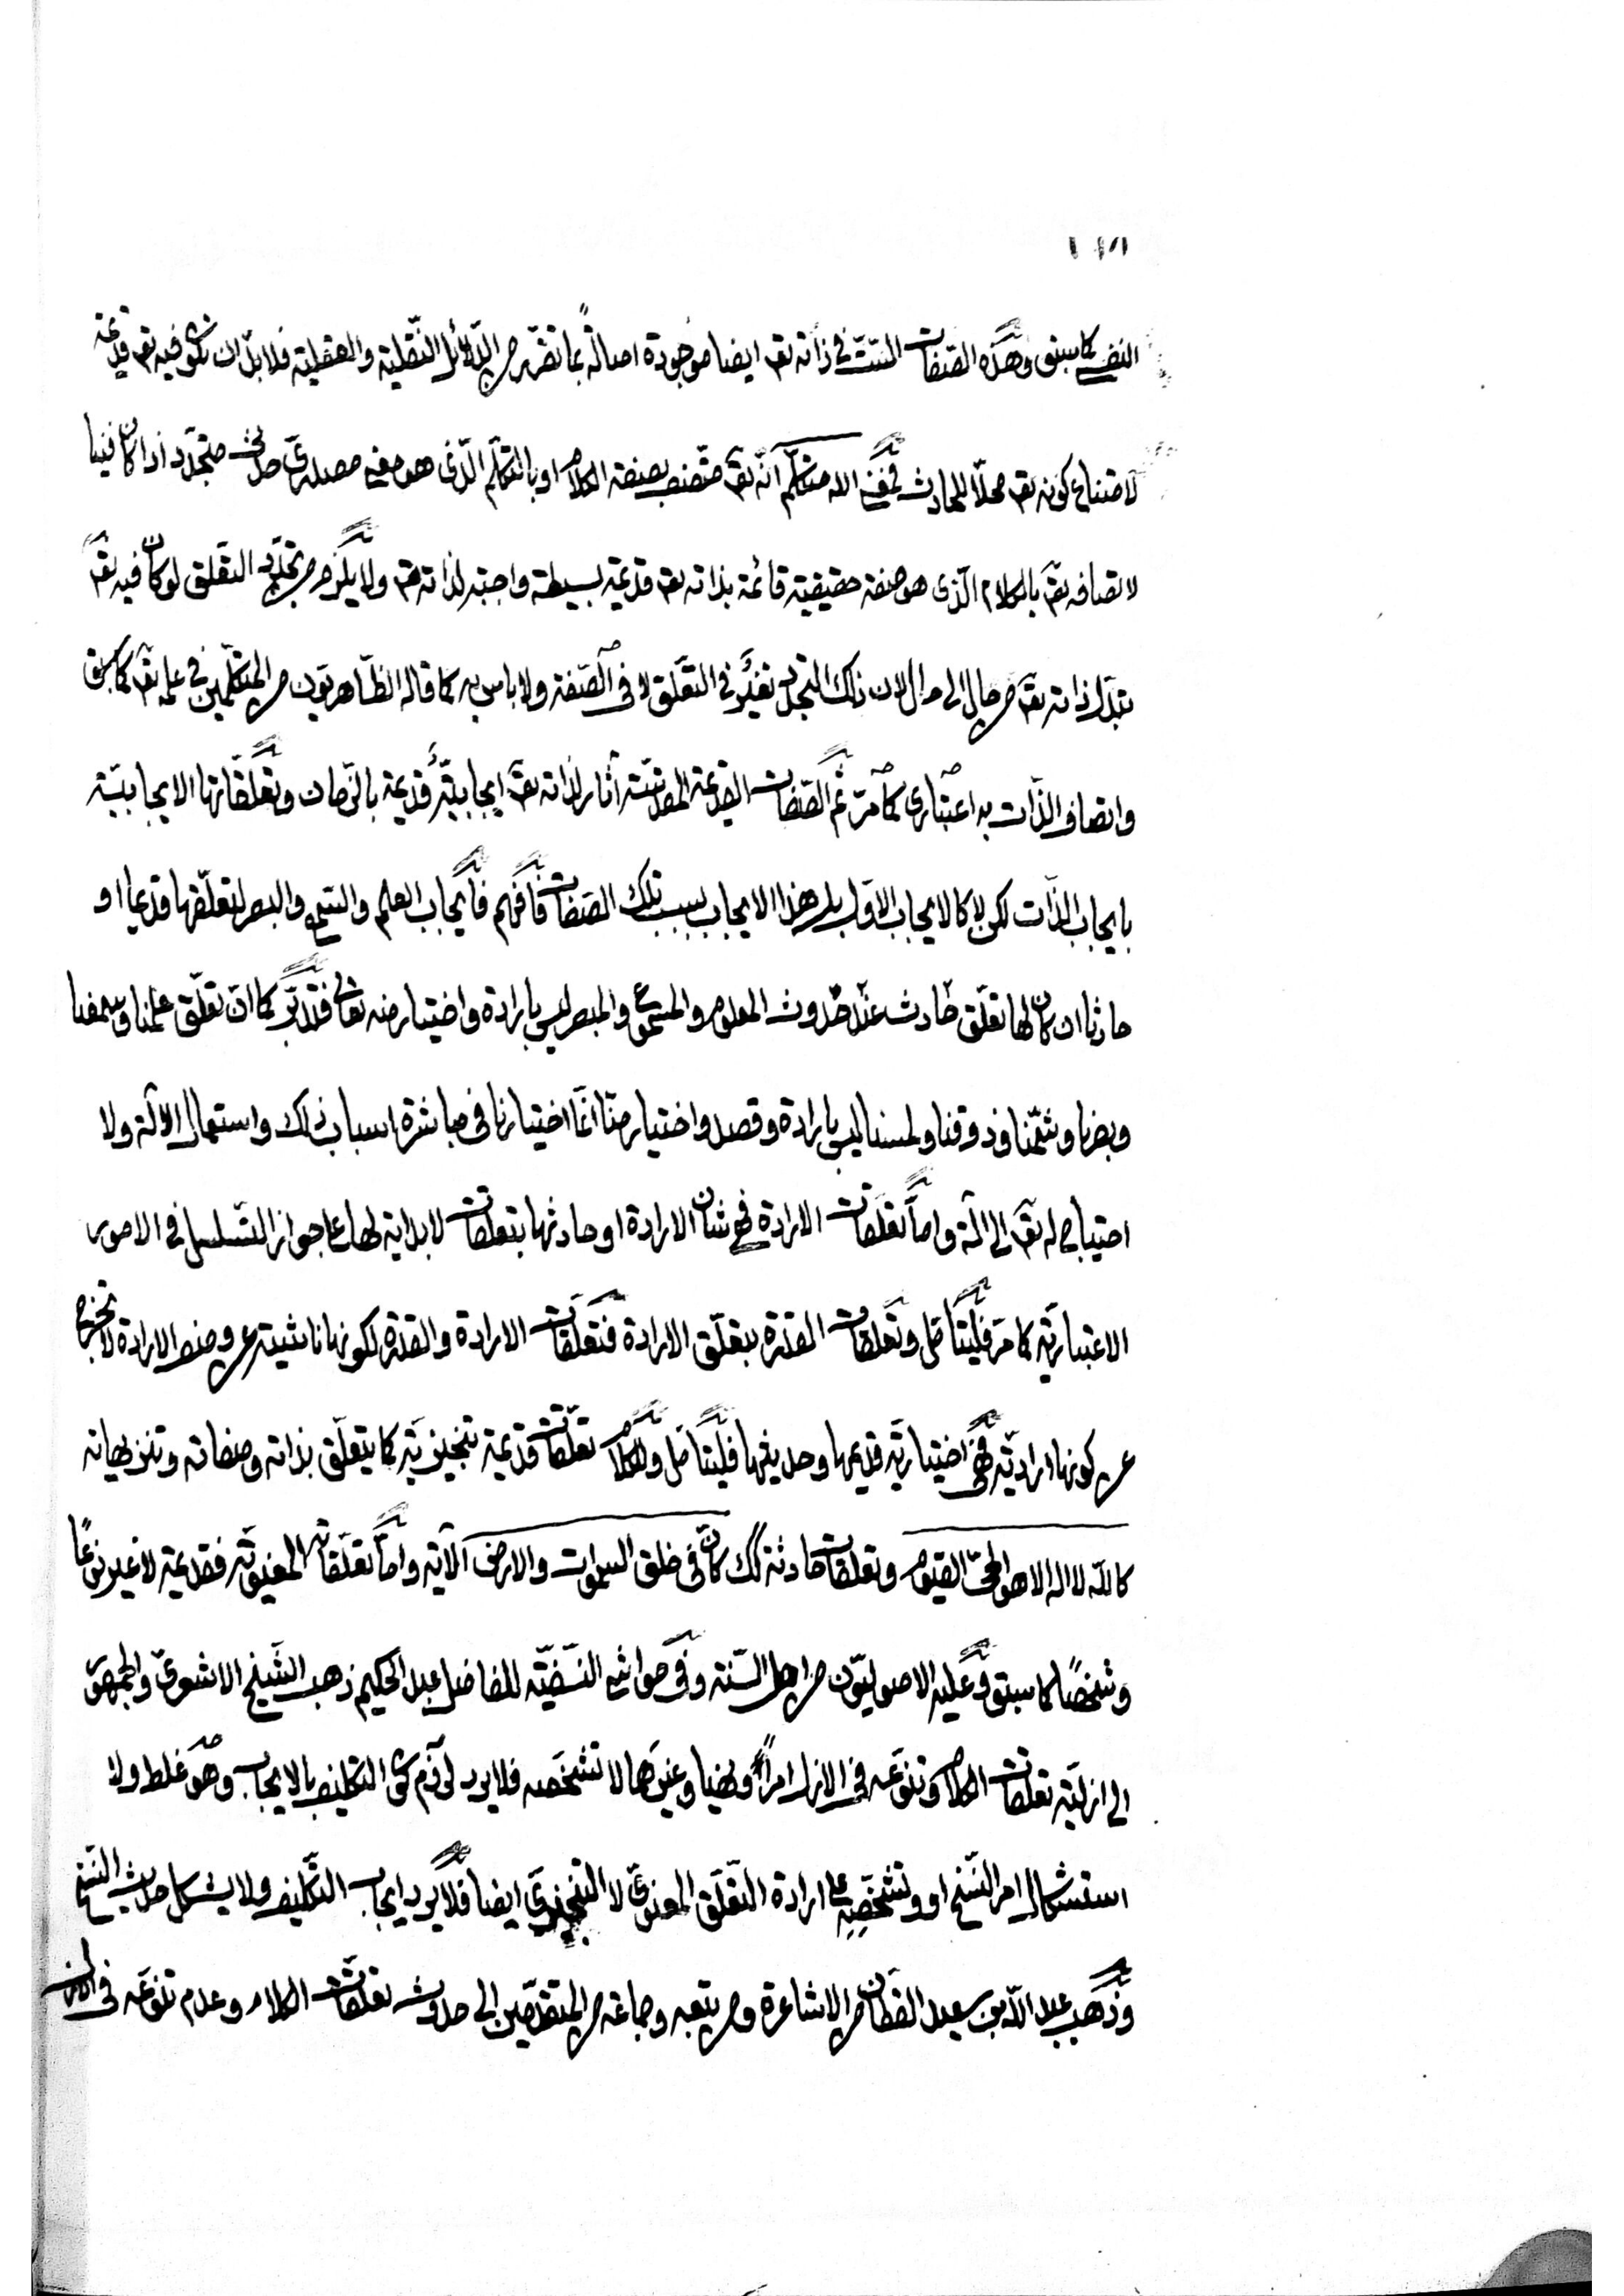 النفس كما سبق وهذه الصفات الست في ذاته تع ايضا موجودة اصالة بما تقرر من الدلائل النقلية والعقلية فلا بد ان تكون فيه تع قديمة
لامتناع كونه تع محلا للحادث فمعنى الله متكلم انه تع متصف بصفة الكلام او بالتكلم الذى هو معنى مصدرى حادث متجدد اذا كان فينا
لاتصافه تع بالكلام الذى هو صفة حقيقية قائمة بذاته تع قديمة بسيطة واجبة لذاته تع ولا يلزم من تجدد التعلق لو كان فيه تع
تبدل ذاته تع من حال الى حال لان ذلك التجدد تغير في التعلق لا في الصفة ولا باس به كما قاله الظاهريون من المتكلمين في علمه تع كما سبق
واتصاف الذات به اعتبارى كما مر ثم الصفات القديمة المقدسة آثار لذاته تع ايجابية قديمة بالزمان وتعلقاتها الايجابية
بايجاب الذات لكن لا كالايجاب الاول بل هذا الايجاب بسبب تلك الصفات فافهم فايجاب العلم والسمع والبصر لتعلقها قديما او
حادثا ان كان لها تعلق حادث عند حدوث المعلوم والمسموع والمبصر ليس بارادة واختيار منه تعالى فتدبر كما ان تعلق علمنا وسمعنا
وبصرنا وشمنا وذوقنا ولمسنا ليس بارادة وقصد واختيار منا انما اختيارنا في مباشرة اسباب ذلك واستعمال الآلة ولا
احتياج له تع الى الة واما تعلقات الارادة فمع شان الارادة او حادثها بتعلقات لا بداية لها على جواز التسلسل في الامور
الاعتبارية كما مر فليتامل وتعلقات القدرة بتعلق الارادة فتعلقات الارادة والقدرة لكونها ناشئة عن وصف الارادة لا تخرج
عن كونها ارادية فهي اختيارية قديمها وحديثها فليتامل وللكلام تعلقات قديمة تنجيزية كما يتعلق بذاته وصفاته وتنزيهاته
كالله لا اله الا هو الحى القيوم وتعلقات حادثة كذلك كان في خلق السموات والارض الآية واما تعلقاته المعنوية فقديمة لا غير نوعا
وشخصا كما سبق وعليه الاصوليون من اهل السنة وفي حواشى النسفية للفاضل عبد الحكيم ذهب الشيخ الاشعرى والجمهور
الى ازلية تعلقات الكلام وتنوعه في الازل امرا ونهيا وغيرها لا تشخصه فلا يرد لزوم كون التكليف بالايجاب وهو غلط ولا
استشكال امر النسخ او وتشخصه على ارادة التعلق المعنوى لا التنجيزى ايضا فلا يرد ايجاب التكليف ولا يشكل حديث النسخ
وذهب عبد الله بن سعيد القطان من الاشاعرة ومن يتبعه وجماعة من المتقدمين الى حدوث تعلقات الكلام وعدم تنوعه في الازل